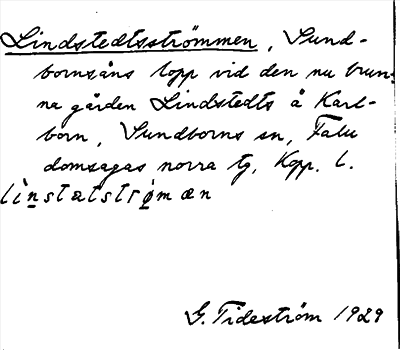 Lindstedtsströmmen, Sund-
bornsåns lopp vid den nu brun-
na gården Lindstedts å Karl-
born, Sundborns sn, Falu
domsagas norra tg, Kopp. l.
lìnstætstrø̜mæn
G. Tideström 1929